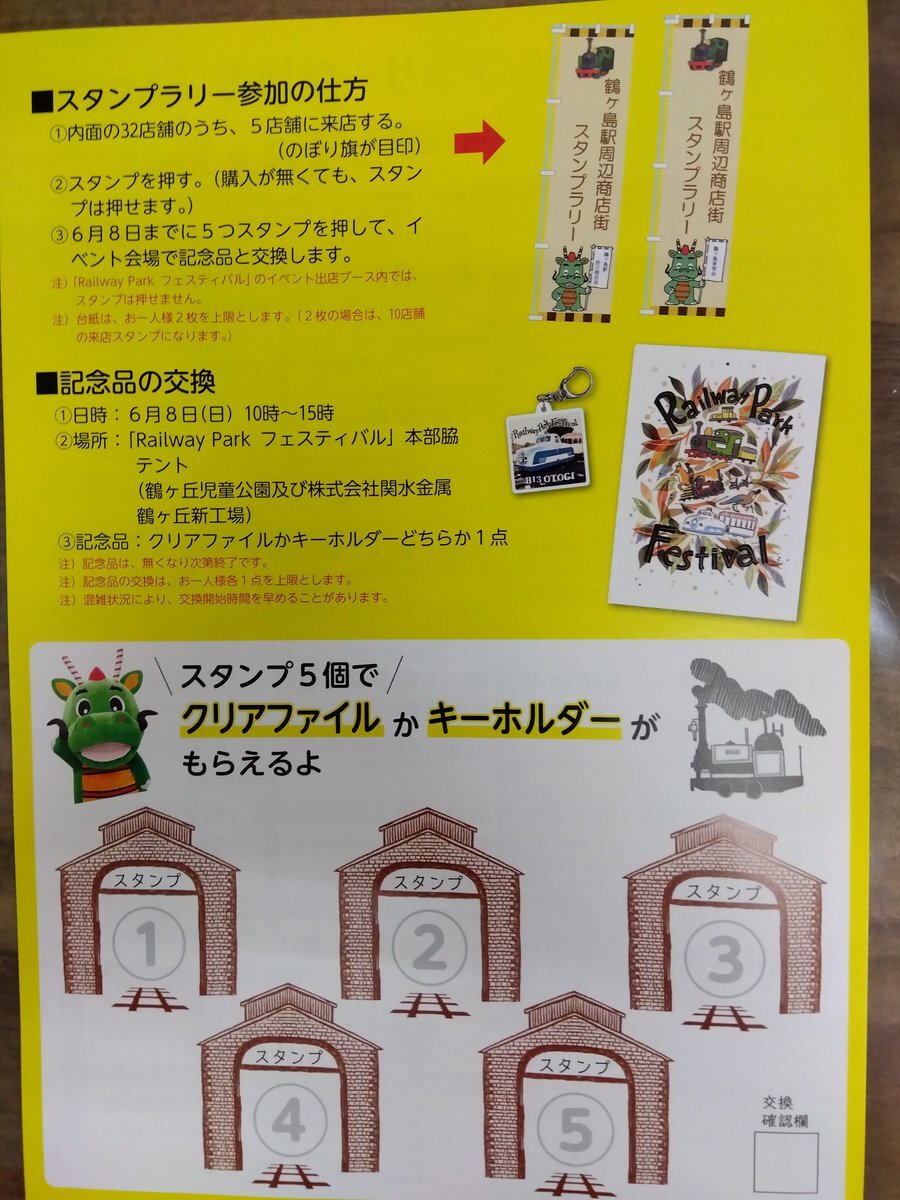 ■スタンプラリー参加の仕方
①内面の32店舗のうち、５店舗に来店する。
(のぼり旗が目印)
②スタンプを押す。(購入が無くても、スタン
プは押せます。)
③６月８日までに５つスタンプを押して、イ
ベント会場で記念品と交換します。
注)「Railway Park フェスティバル」のイベント出店ブース内では、
スタンプは押せません。
注) 台紙は、お一人様２枚を上限とします。(２枚の場合は、10店舗
の来店スタンプになります。)
鶴ヶ島駅周辺商店街
スタンプラリー
鶴ヶ島駅周辺商店街
スタンプラリー
■記念品の交換
①日時：６月８日(日) 10時～15時
②場所：「Railway Park フェスティバル」本部脇
テント
(鶴ヶ丘児童公園及び株式会社関水金属
鶴ヶ丘新工場)
③記念品：クリアファイルかキーホルダーどちらか１点
注) 記念品は、無くなり次第終了です。
注) 記念品の交換は、お一人様各１点を上限とします。
注) 混雑状況により、交換開始時間を早めることがあります。
Railway Park Festival
B13 OTOGI
Railway Park
Festival
スタンプ５個で
クリアファイル か キーホルダー が
もらえるよ
スタンプ
1
スタンプ
2
スタンプ
3
スタンプ
4
スタンプ
5
交換
確認欄